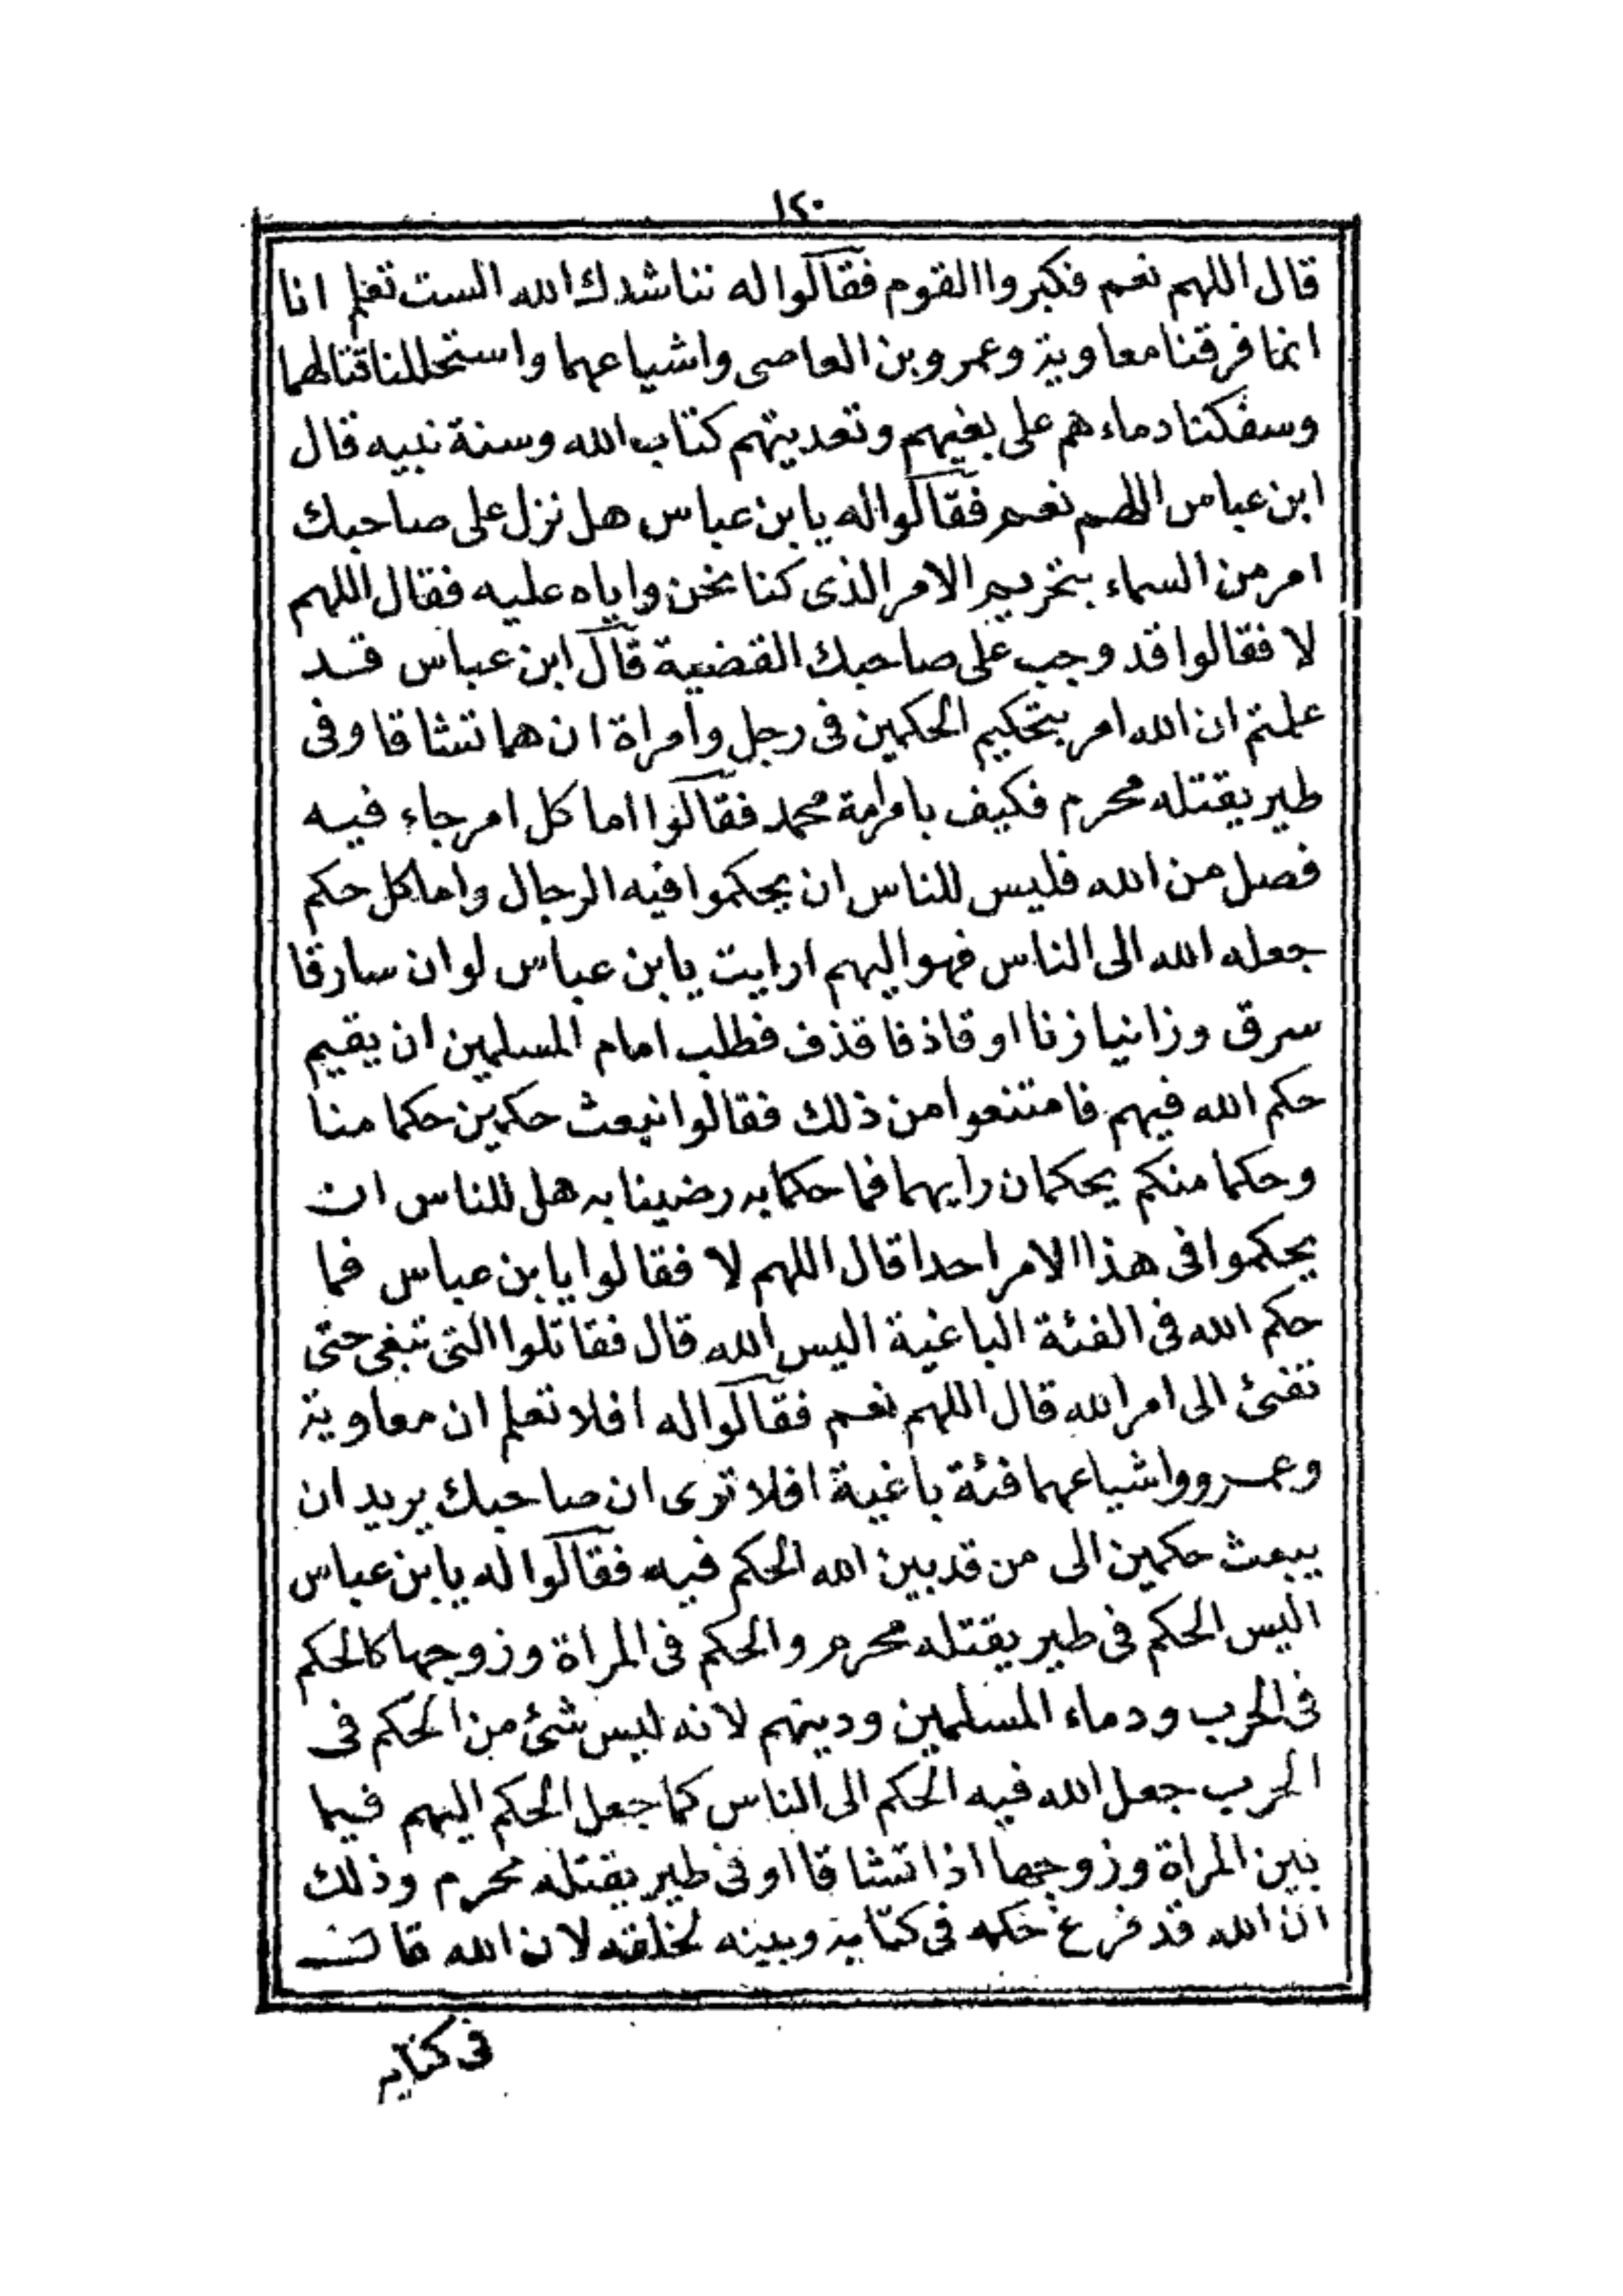 ١٢٠
قال اللهم نعم فكبروا القوم فقالوا له نناشدك الله الست تعلم انا
انما فرقنا معاوية وعمرو بن العاصى واشياعهما واستحللنا قتالهما
وسفكنا دماءهم على بغيهم وتعديتهم كتاب الله وسنة نبيه قال
ابن عباس اللهم نعم فقالوا له يا بن عباس هل نزل على صاحبك
امر من السماء بتحريم الامر الذى كنا نحن واياه عليه فقال اللهم
لا فقالوا قد وجب على صاحبك القضية قال ابن عباس قد
علمتم ان الله امر بتحكيم الحكمين فى رجل وامراة ان هما تشاقا وفى
طير يقتله محرم فكيف بامرامة محمد فقالوا اما كل امر جاء فيه
فصل من الله فليس للناس ان يحكموا فيه الرجال واما كل حكم
جعله الله الى الناس فهو اليهم ارايت يابن عباس لو ان سارقا
سرق وزانيا زنا او قاذفا قذف فطلب امام المسلمين ان يقيم
حكم الله فيهم فامتنعوا من ذلك فقالوا نبعث حكمين حكما منا
وحكما منكم يحكمان رايهما فما حكما به رضينا به هل للناس ان
يحكموا فى هذا الامر احدا قال اللهم لا فقالوا يابن عباس فما
حكم الله فى الفئة الباغية اليس الله قال فقاتلوا التى تبغى حتى
تفىئ الى امر الله قال اللهم نعم فقالوا له افلا تعلم ان معاوية
وعمرو واشياعهما فئة باغية افلا ترى ان صاحبك يريد ان
يبعث حكمين الى من قد بين الله الحكم فيه فقالوا له يابن عباس
اليس الحكم فى طير يقتله محرم والحكم فى المراة وزوجها كالحكم
فى الحرب ودماء المسلمين ودينهم لانه ليس شئ من الحكم فى
الحرب جعل الله فيه الحكم الى الناس كما جعل الحكم اليهم فيما
بين المراة وزوجها اذا تشاقا او فى طير يقتله محرم وذلك
ان الله قد فرغ حكمه فى كتابه وبينه لخلقه لان الله قال
فى كتابه